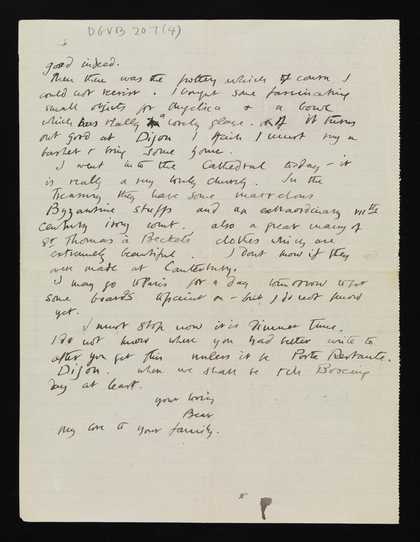 DGVB 20.7 (4)
good indeed.
Then there was the pottery which of course I
could not resist. I bought some fascinating
small objects for Angelica & a bowl
which has really a lovely glaze. If it turns
out good at Dijon I think I must buy a
basket & bring some home.
I went into the Cathedral today - it
is really a very lovely church. In the
Treasury they have some marvelous
Byzantine stuffs and an extraordinary VIIth
century ivory comb. also a great many of
St Thomas à Beckets clothes which are
extremely beautiful. I dont know if they
were made at Canterbury.
I may go to Paris for a day tomorrow to get
some boards to paint on - but I do not know
yet.
I must stop now it is dinner time.
I do not know where you had better write to
after you get this unless it be Poste Restante.
Dijon. where we shall be till Boxing
Day at least.
your loving
Bear
My love to your family.